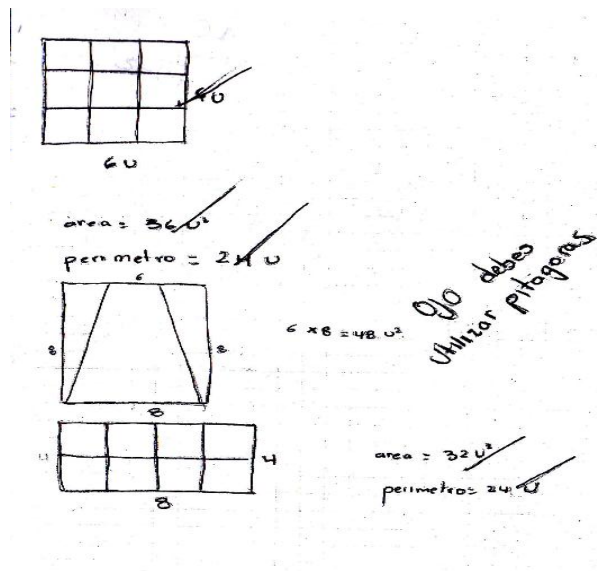 6 U
area = 36 u²
perimetro = 24 U
6
8
8
6 x 8 = 48 u²
Ojo debes
utilizar pitágoras
8
4
8
area = 32 u²
perimetro = 24 U